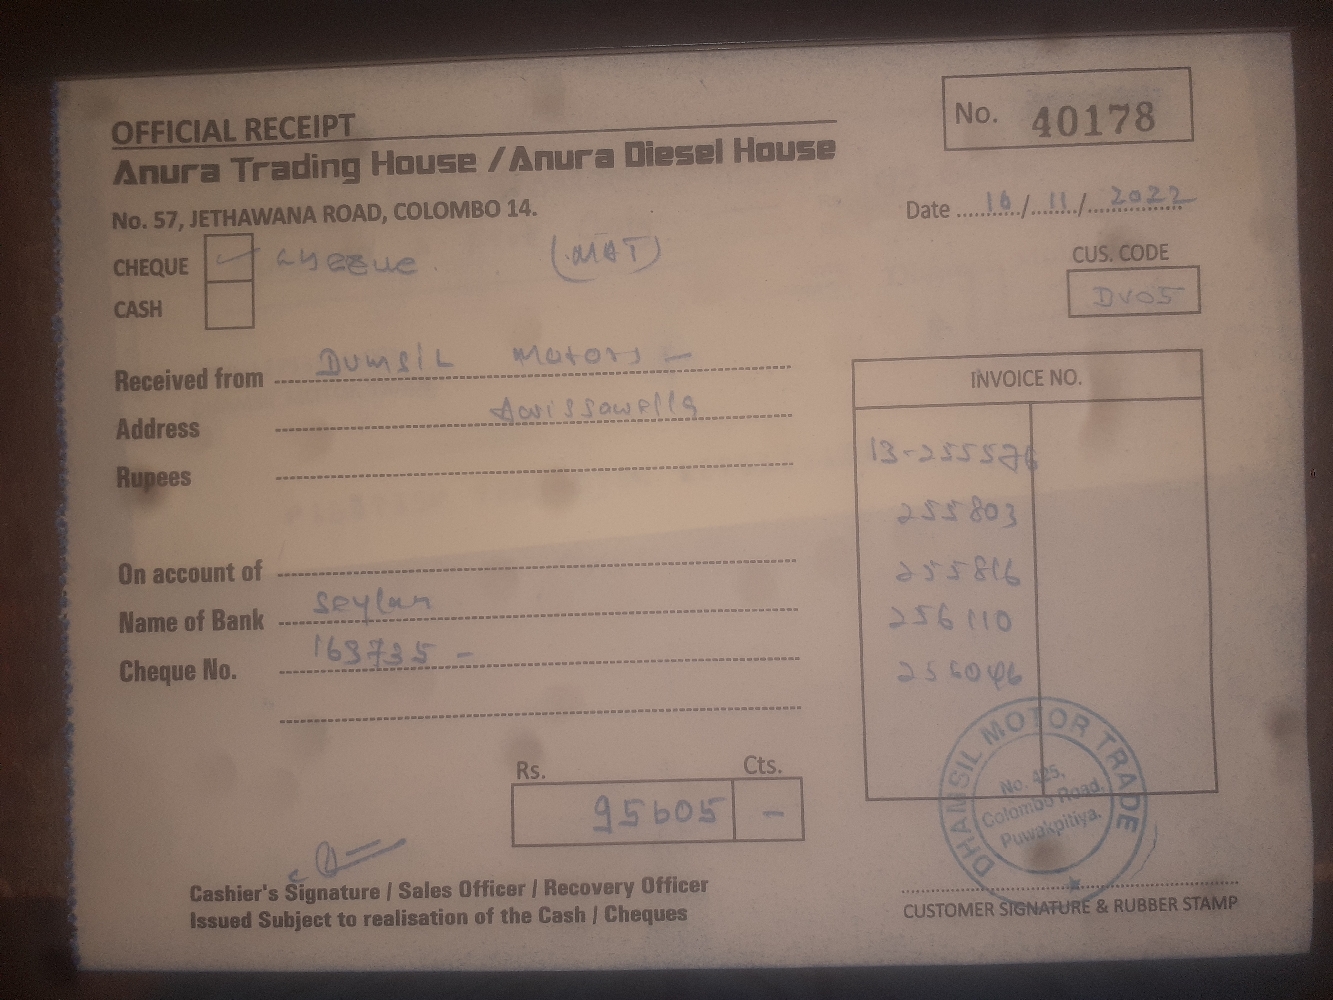 OFFICIAL RECEIPT
No. 40178
Anura Trading House / Anura Diesel House
No. 57, JETHAWANA ROAD, COLOMBO 14.
Date 16/11/2022
CHEQUE
CASH
CUS. CODE
DV05
Received from Dumsil Motors -
Address Awissawella
Rupees
On account of
Name of Bank Seylan
Cheque No. 163735 -
INVOICE NO.
13-255576
255803
255816
256110
256046
Rs. Cts.
95605 -
DHAMSIL MOTOR TRADE
No. 425,
Colombo Road,
Puwakpitiya.
Cashier's Signature / Sales Officer / Recovery Officer
Issued Subject to realisation of the Cash / Cheques
CUSTOMER SIGNATURE & RUBBER STAMP